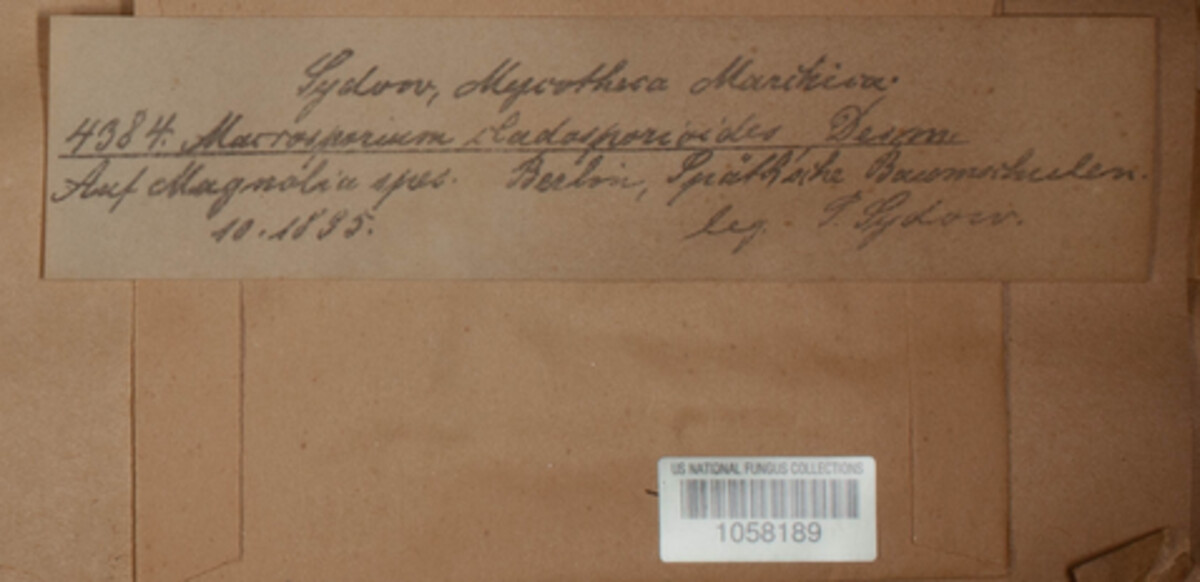 Sydow, Mycotheca Marchica.
4384. Macrosporium cladosporioides Desm.
Auf Magnolia spec. Berlin, Späth'sche Baumschulen.
10. 1895. leg. P. Sydow.
US NATIONAL FUNGUS COLLECTIONS
1058189